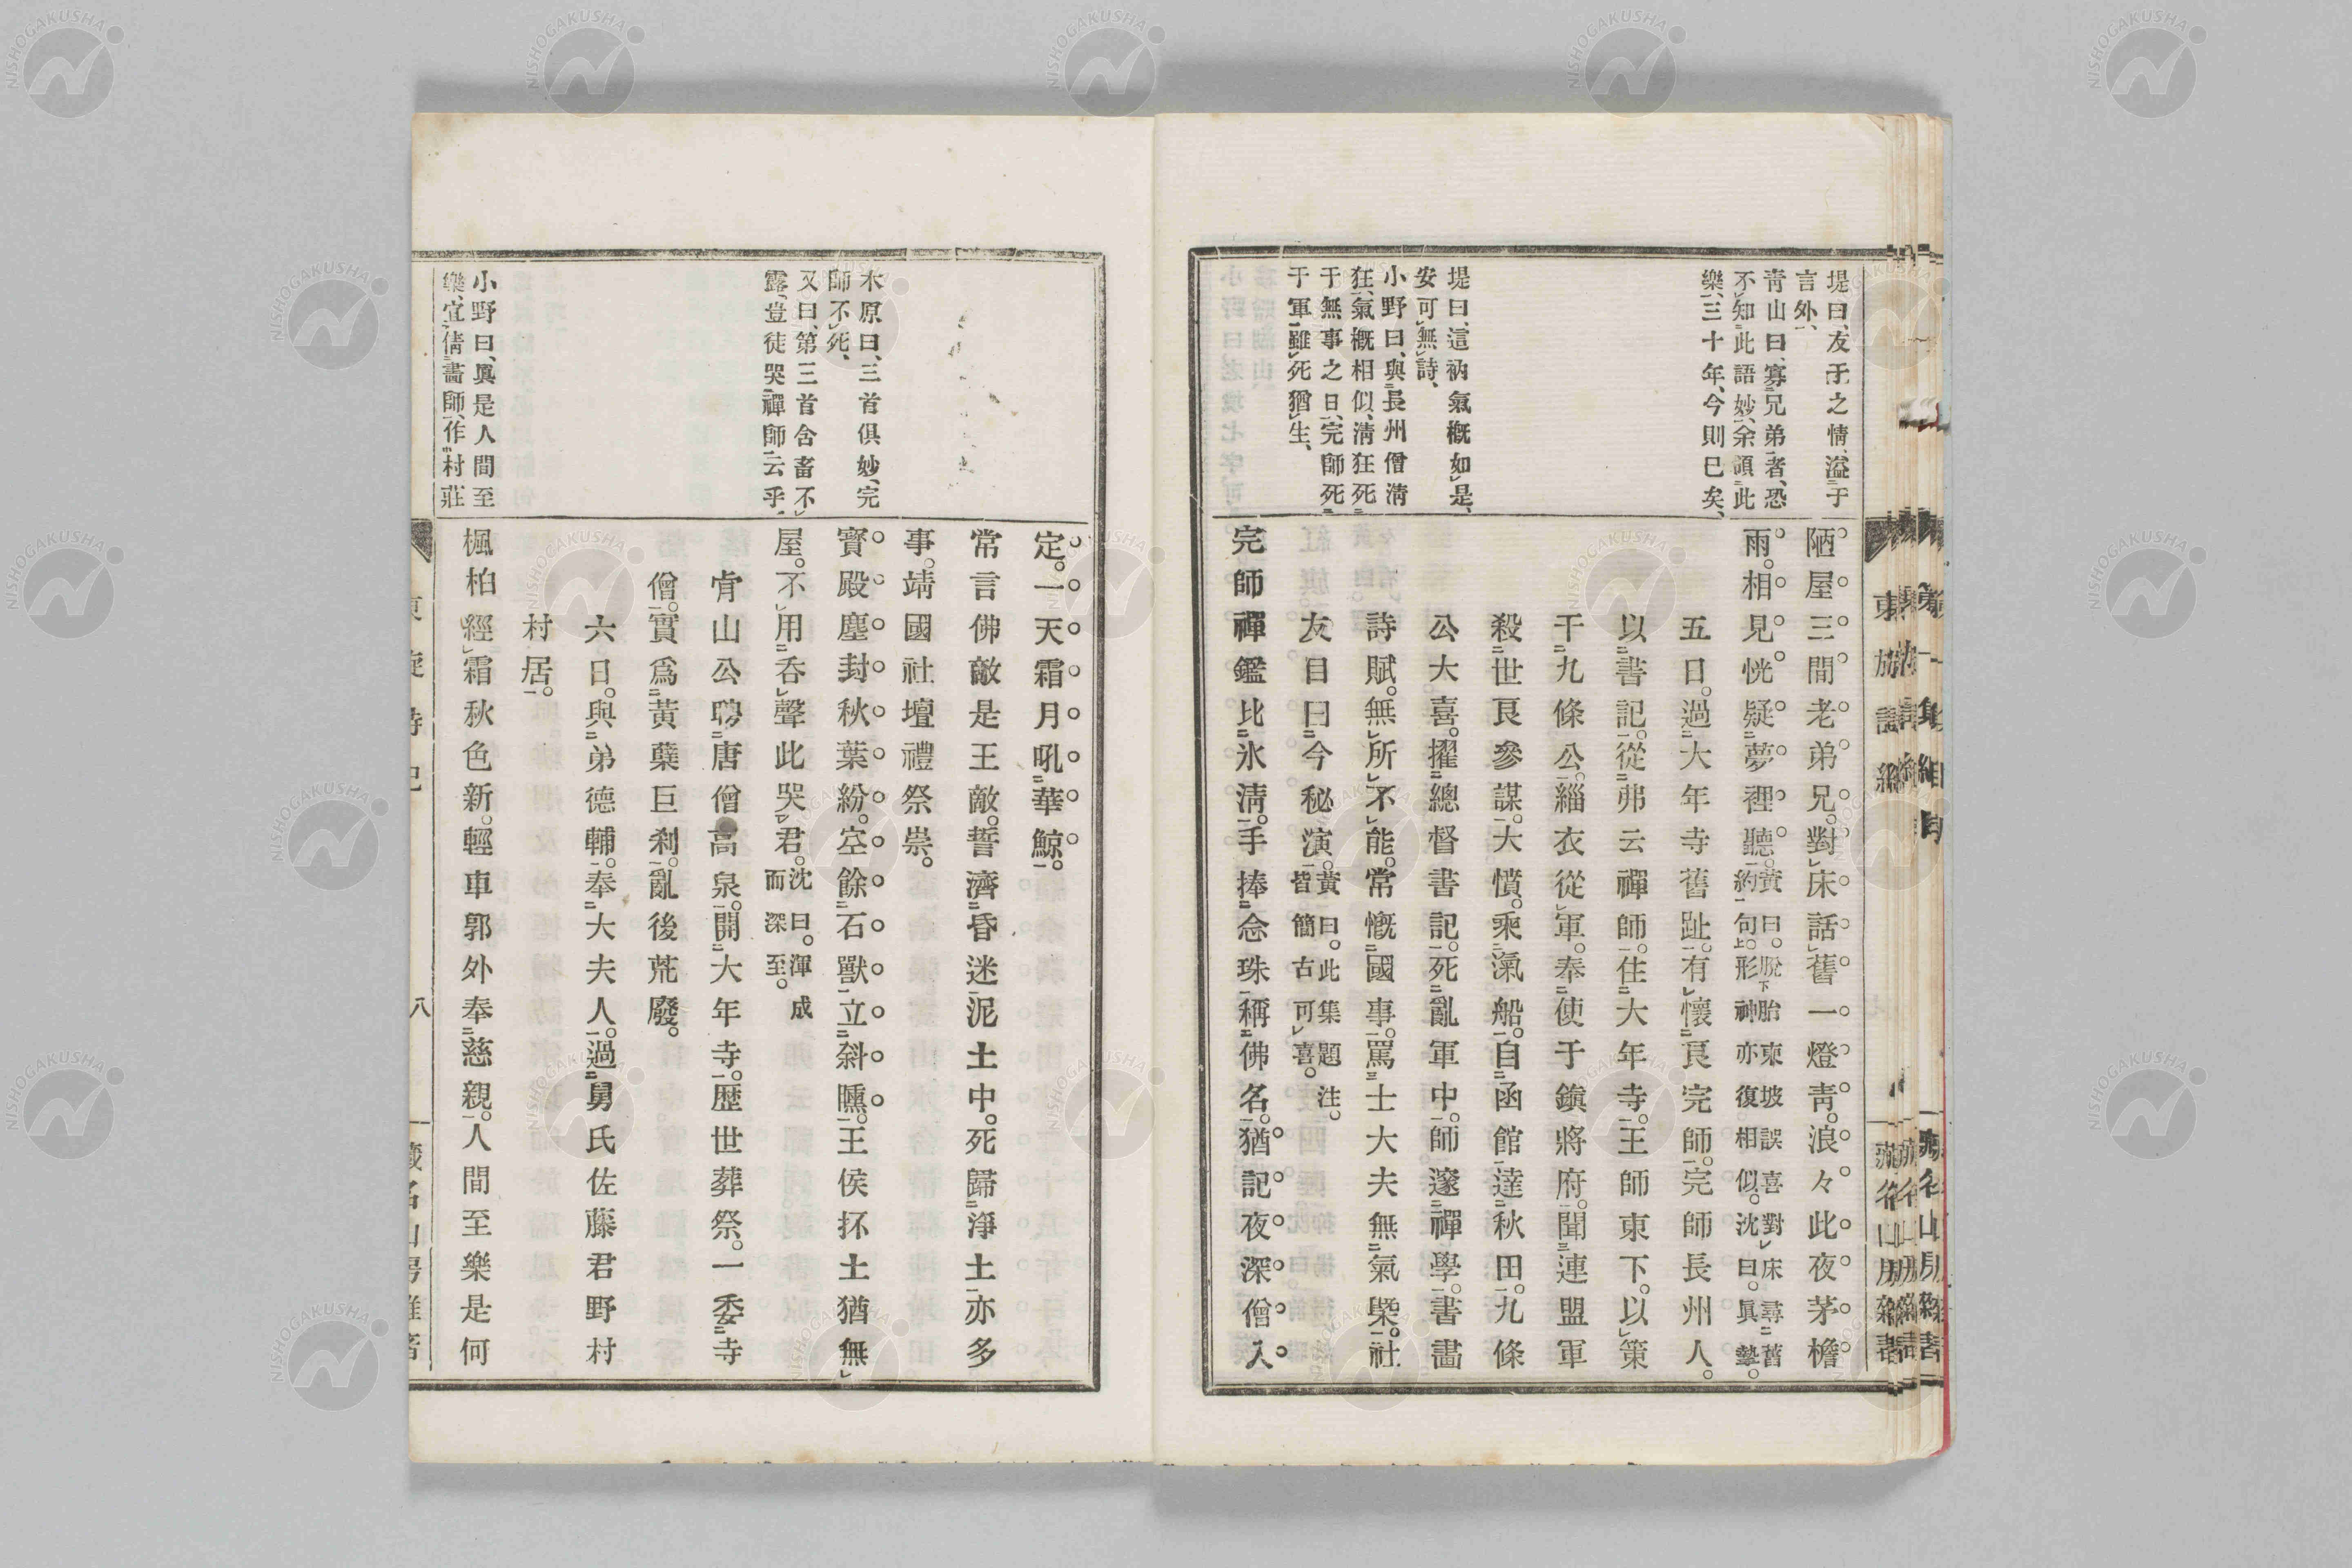 堤曰、友于之情、溢于
言外、
青山曰、寡兄弟者、恐
不知此語妙、余領此
樂、三十年、今則已矣、
堤曰、這衲氣概如是、
安可無詩、
小野曰、與長州僧清
狂、氣概相似、清狂死
于無事之日、完師死
于軍、雖死猶生、
陋屋三間老弟兄。對床話舊一燈靑。浪々此夜茅檐
雨。相見恍疑夢裡聽。黃曰。脫胎東坡誤喜對床尋舊
約句。形神亦復相似。沈曰。眞摯。
五日。過大年寺舊趾。有懷艮完師。完師長州人。
以書記。從弗云禪師。住大年寺。王師東下。以策
干九條公。緇衣從軍。奉使于鎭將府。聞連盟軍
殺世艮參謀。大憤。乘滊船。自函館達秋田。九條
公大喜。擢總督書記。死亂軍中。師邃禪學。書畫
詩賦。無所不能。常慨國事。罵士大夫無氣槩。社
友目曰今秘演。黃曰。此集題注。
皆簡古可喜。
完師禪鑑比氷淸。手捧念珠稱佛名。猶記夜深僧入
定。一天霜月吼華鯨。
常言佛敵是王敵。誓濟昏迷泥土中。死歸淨土亦多
事。靖國社壇禮祭崇。
寶殿塵封秋葉紛。空餘石獸立斜曛。王侯抔土猶無
屋。不用呑聲此哭君。沈曰。渾成
而深至。
肯山公聘唐僧高泉。開大年寺。歷世葬祭。一委寺
僧。實爲黃蘗巨刹。亂後荒廢。
六日。與弟德輔。奉大夫人。過舅氏佐藤君野村
村居。
楓柏經霜秋色新。輕車郭外奉慈親。人間至樂是何
木原曰、三首俱妙、完
師不死、
又曰、第三首含畜不
露、豈徒哭禪師云乎、
小野曰、眞是人間至
樂、宜倩畵師、作村莊
八